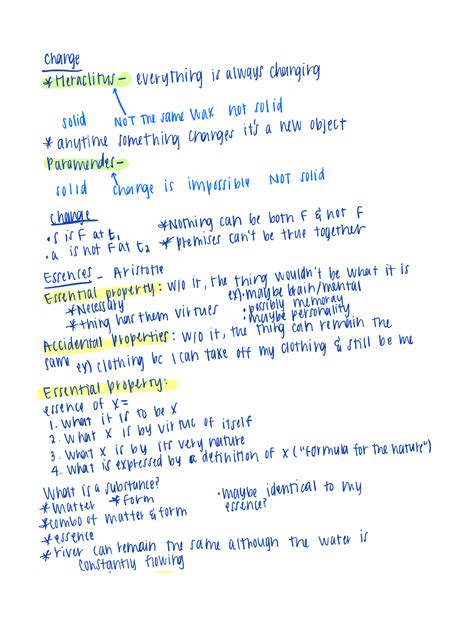 change
*Heraclitus- everything is always changing
solid NOT the same wax not solid
* anytime something changes it's a new object
Paramendes-
solid change is impossible NOT solid
change
• s is F at t1 *Nothing can be both F & not F
• a is not F at t2 * premises can't be true together
Essences - Aristotle
Essential property: w/o it, the thing wouldn't be what it is
*Necessary ex) • maybe brain/mental
*thing has them virtues • possibly memoray
• maybe personality
Accidental properties: w/o it, the thing can remain the
same ex) clothing bc I can take off my clothing & still be me
Essential property:
essence of x=
1. What it is to be x
2. What x is by virtue of itself
3. What x is by its very nature
4. What is expressed by a definition of x ("formula for the nature")
What is a substance?
*matter *form • maybe identical to my
*combo of matter & form essence?
*essence
*river can remain the same although the water is
constantly flowing